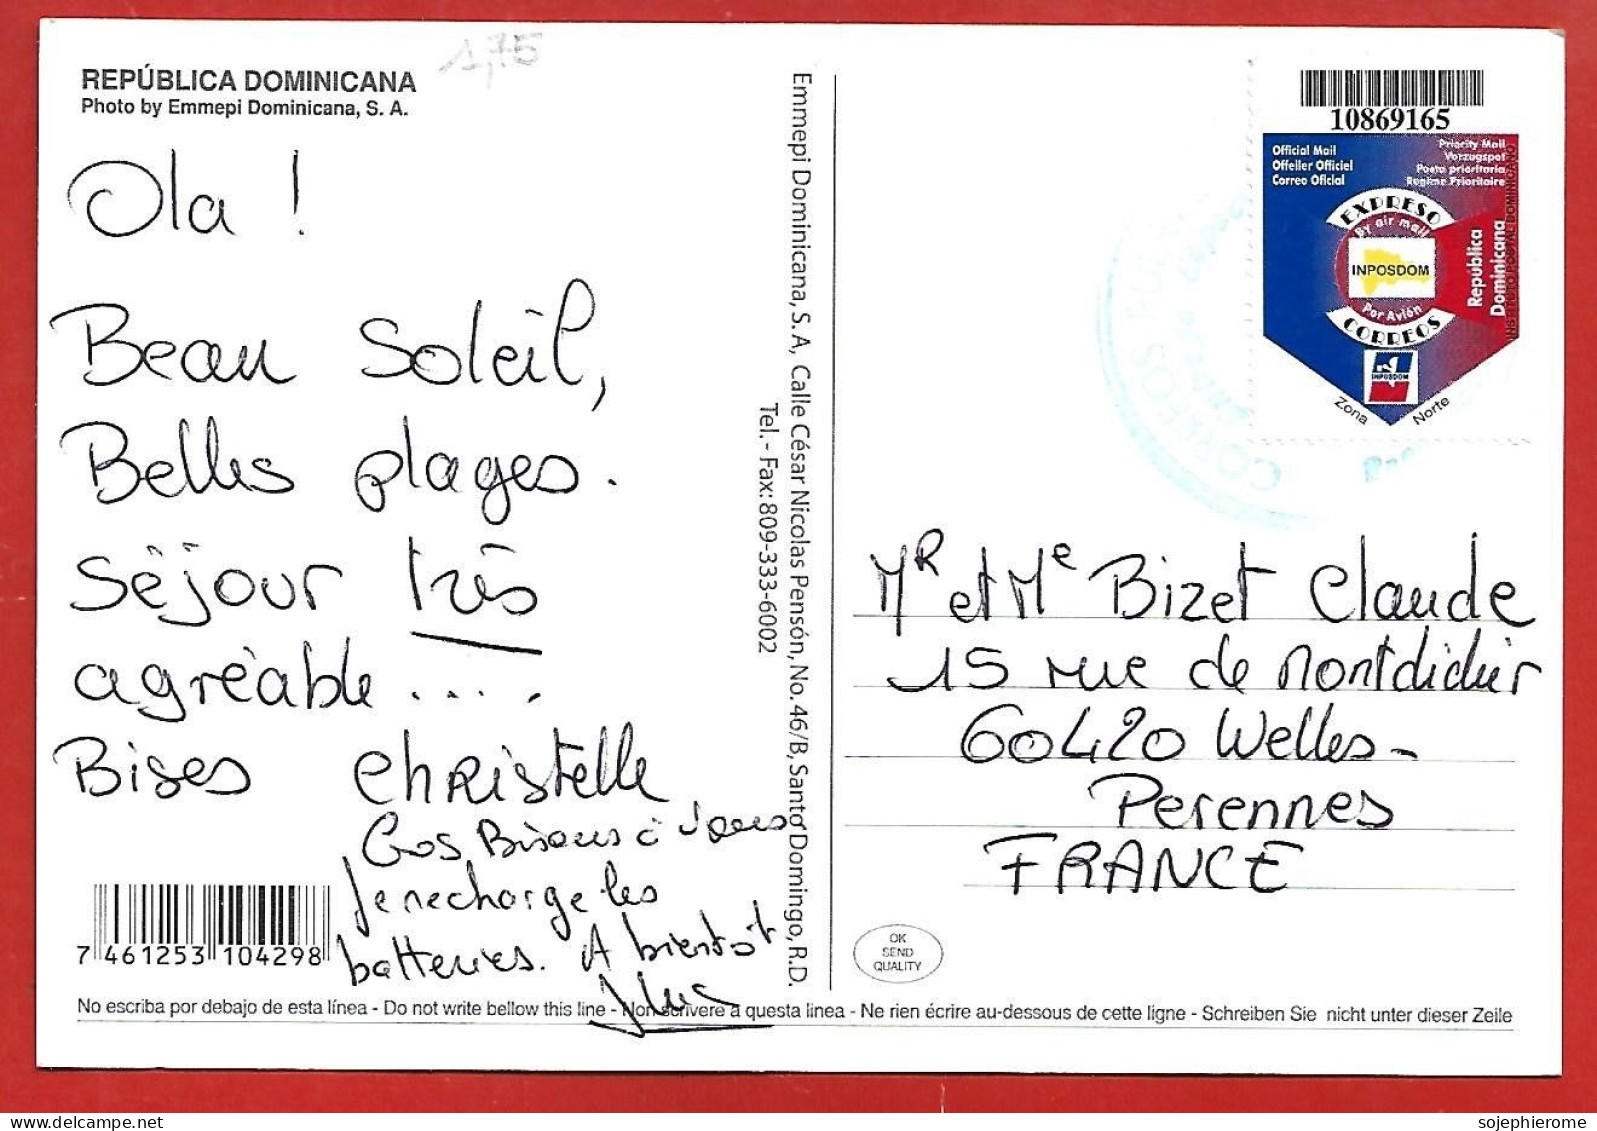 1,75
REPÚBLICA DOMINICANA
Photo by Emmepi Dominicana, S. A.
Ola !
Beau Soleil,
Belles plages.
Séjour très
agréable ....
Bises Christelle
Gros Bisous à vous
Je recharge les
batteries. A bientôt
7 461253 104298
Emmepi Dominicana, S. A, Calle César Nicolas Pensón, No. 46/B, Santo Domingo, R.D.
Tel.- Fax: 809-333-6002
10869165
Official Mail
Offeller Officiel
Correo Oficial
Priority Mail
Vorzugspot
Posta prioritaria
Regime Prioritaire
EXPRESO
By air mail
INPOSDOM
Por Avión
CORREOS
República
Dominicana
INSTITUTO POSTAL DOMINICANO
INPOSDOM
Zona Norte
Mr et Me Bizet Claude
15 rue de Montdidier
60420 Welles-
Perennes
FRANCE
OK
SEND
QUALITY
No escriba por debajo de esta línea - Do not write bellow this line - Non scrivere a questa linea - Ne rien écrire au-dessous de cette ligne - Schreiben Sie nicht unter dieser Zeile
sojephierome